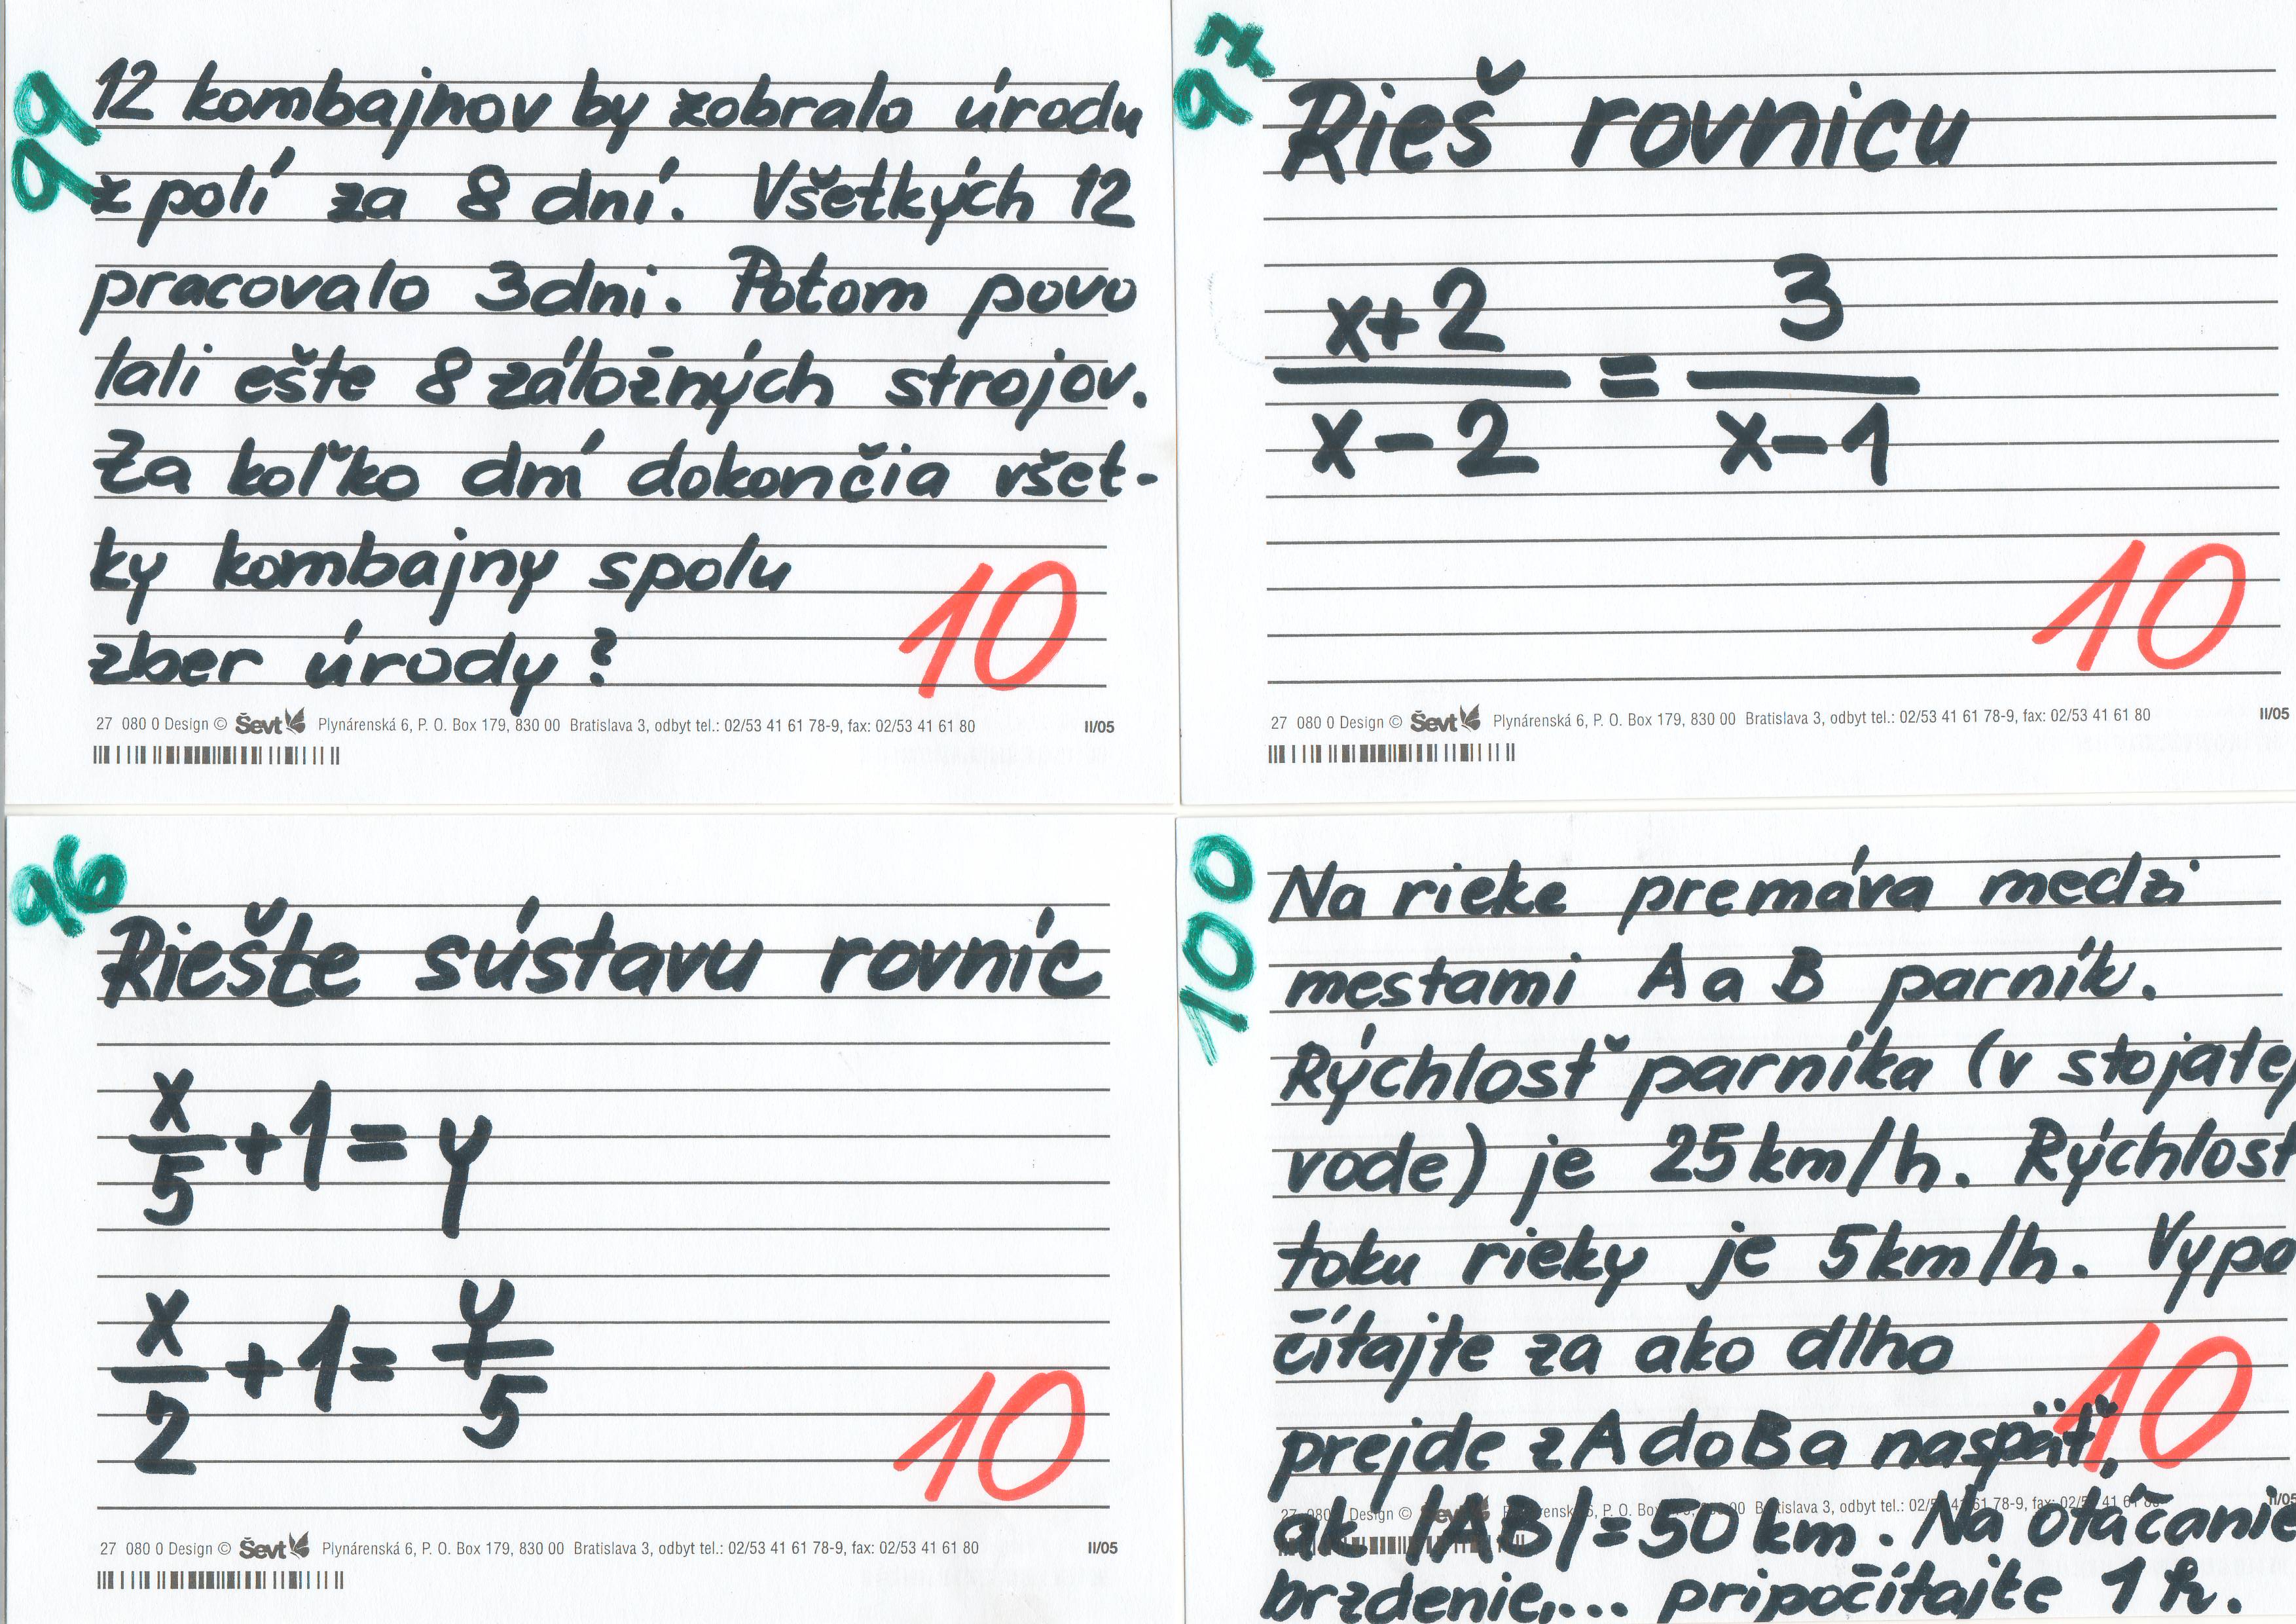 99
12 kombajnov by zobralo úrodu
z polí za 8 dní. Všetkých 12
pracovalo 3dni. Potom povo
lali ešte 8 záložných strojov.
Za koľko dní dokončia všet-
ky kombajny spolu
zber úrody?
10
27 080 0 Design © Ševt Plynárenská 6, P. O. Box 179, 830 00 Bratislava 3, odbyt tel.: 02/53 41 61 78-9, fax: 02/53 41 61 80 II/05
97
Rieš rovnicu
x+2 / x-2 = 3 / x-1
10
27 080 0 Design © Ševt Plynárenská 6, P. O. Box 179, 830 00 Bratislava 3, odbyt tel.: 02/53 41 61 78-9, fax: 02/53 41 61 80 II/05
96
Riešte sústavu rovníc
x/5 + 1 = y
x/2 + 1 = y/5
10
27 080 0 Design © Ševt Plynárenská 6, P. O. Box 179, 830 00 Bratislava 3, odbyt tel.: 02/53 41 61 78-9, fax: 02/53 41 61 80 II/05
100
Na rieke premáva medzi
mestami A a B parník.
Rýchlosť parníka (v stojatej
vode) je 25 km/h. Rýchlosť
toku rieky je 5 km/h. Vypo
čítajte za ako dlho
prejde z A do B a naspäť,
ak |AB| = 50 km. Na otáčanie
brzdenie,... pripočítajte 1 h.
10
27 080 Design © Ševt P. O. Box 00 Bratislava 3, odbyt tel.: 02/53 41 61 78-9, fax: 02/53 41 61 80 II/05